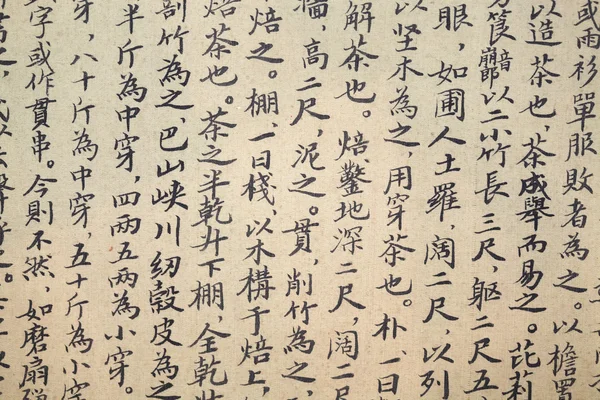 或雨衫單服敗者為之。以檐置
以造茶也,茶成舉而易之。芘莉
筤以二小竹長三尺,軀二尺五
眼,如圃人土羅,闊二尺,以列
以坚木為之,用穿茶也。朴,一曰
解茶也。焙,鑿地深二尺,闊二尺
墻,高二尺,泥之。貫,削竹為之,
焙之。棚,一曰棧,以木構于焙上,
焙茶也。茶之半乾廾下棚,全乾
剖竹為之,巴山峽川紉縠皮為之
半斤為中穿,四兩五兩為小穿。
穿,八十斤為中穿,五十斤為小穿
字或作貫串。今則不然,如磨扇彈